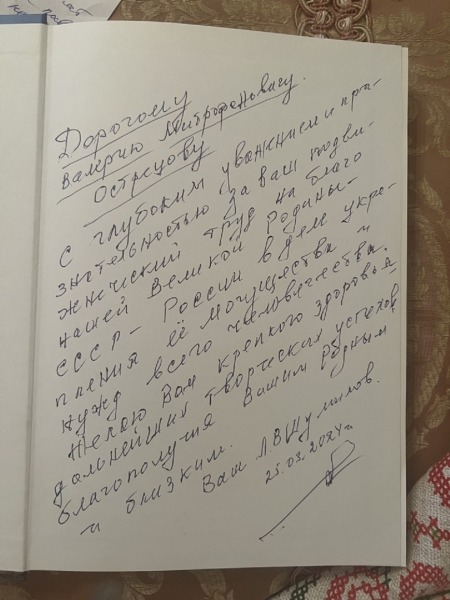 Дорогому
Валерию Митрофановичу
Острецову
С глубоким уважением и при-
знательностью за ваш подви-
жнический труд на благо
нашей Великой Родины-
СССР - России в деле укре-
пления её могущества и
нужд всего человечества.
Желаю Вам крепкого здоровья
дальнейших творческих успехов
благополучия Вашим Родным
и близким.
Ваш Л.В.Шумилов.
25.03.2024г